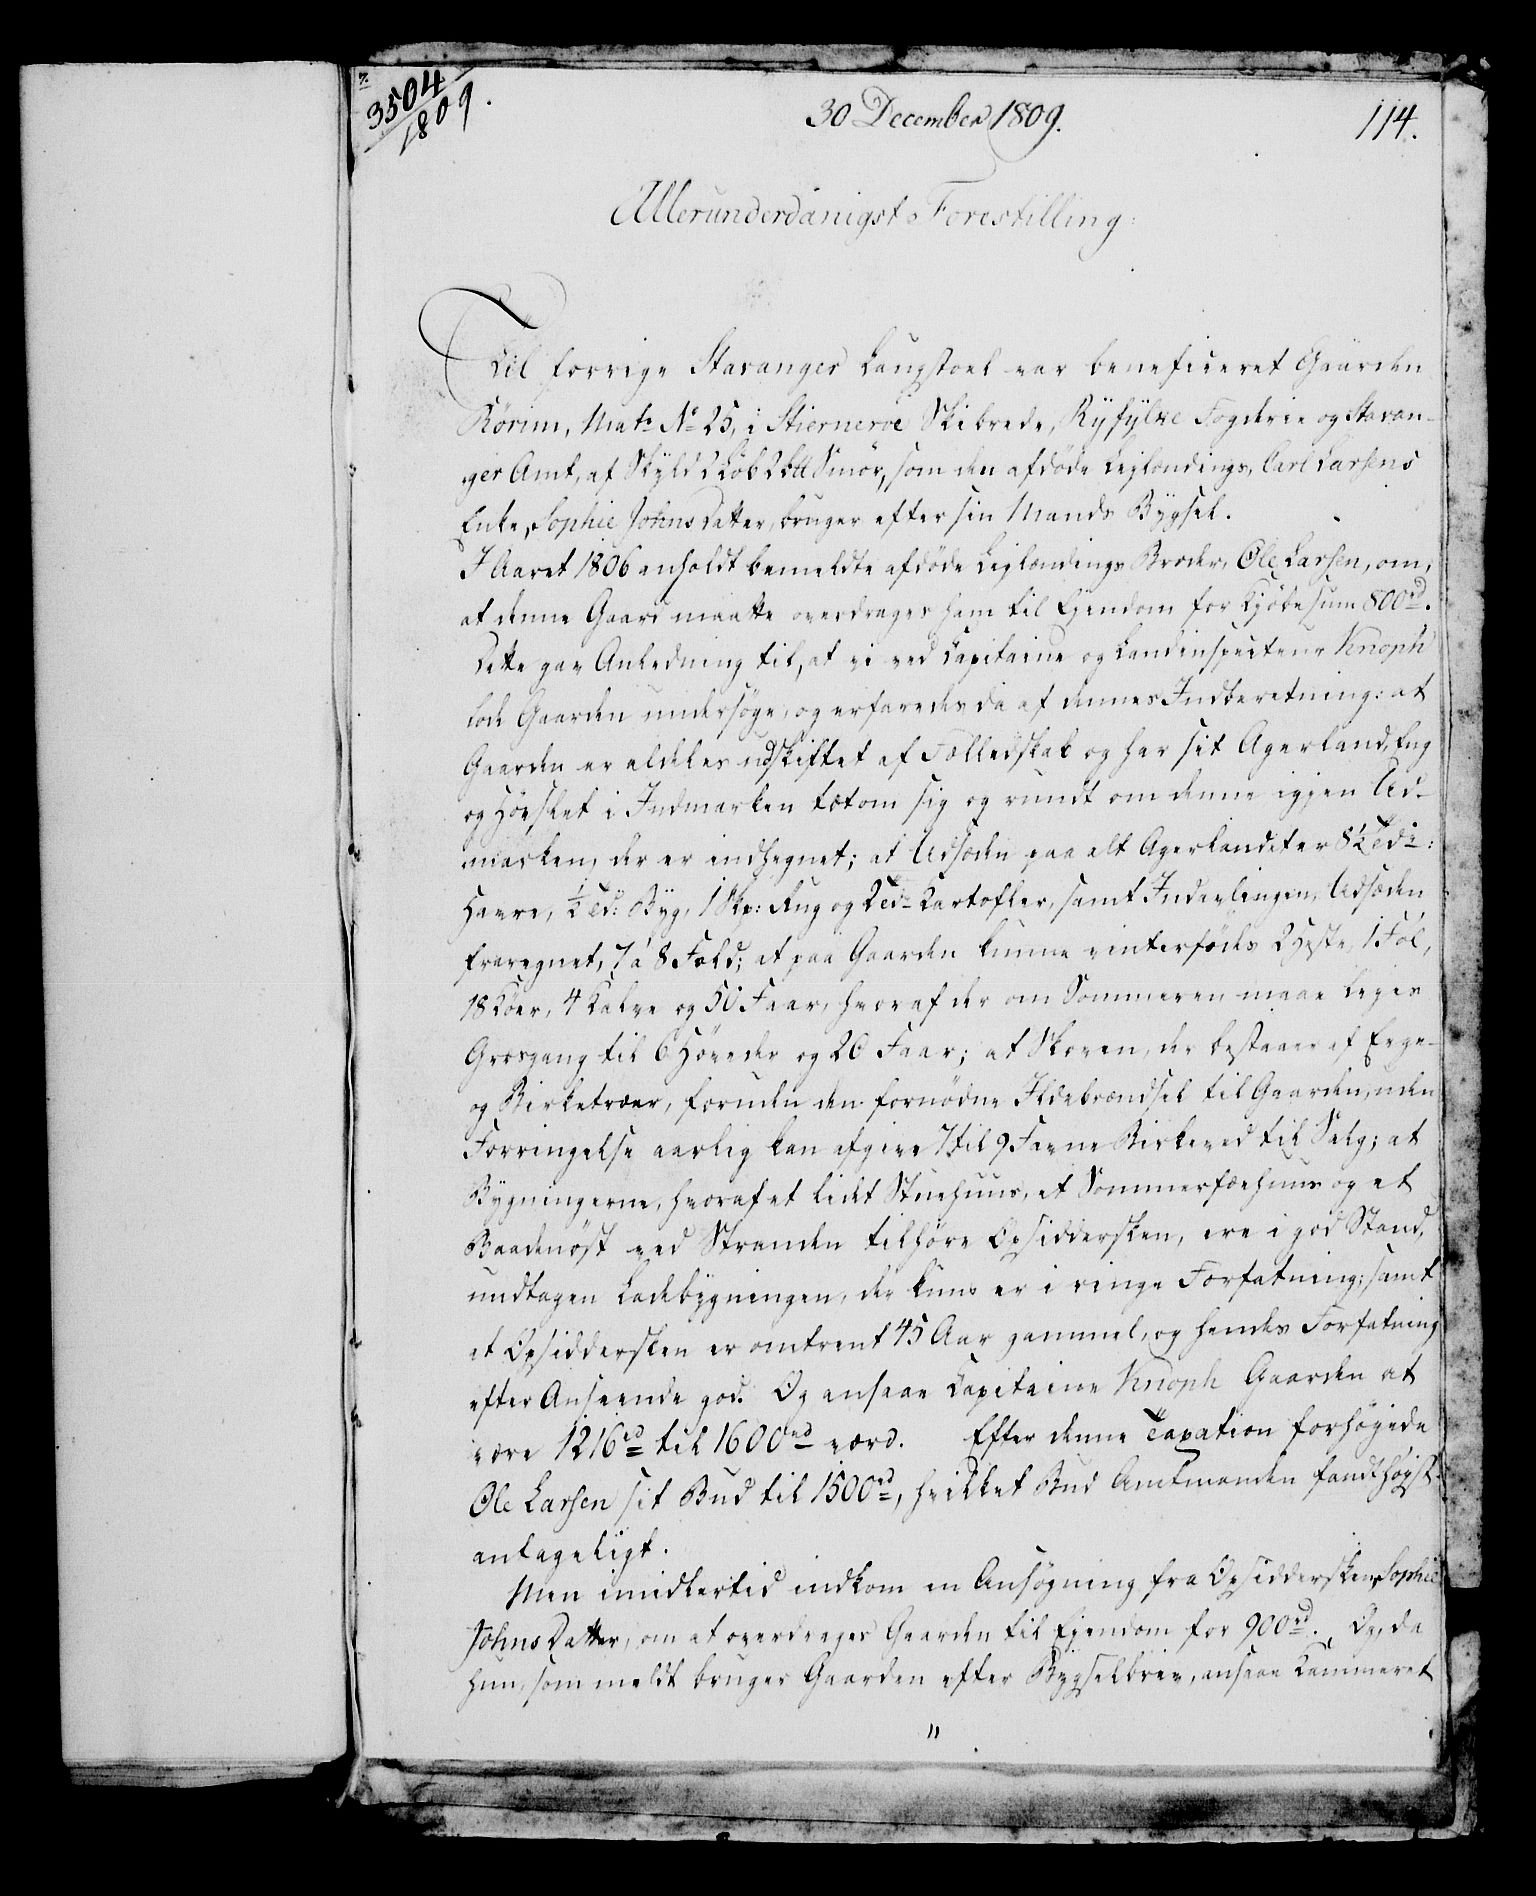 7.
3504
1809.
30 December 1809.
114.
Allerunderdanigst Forestilling:
Til forrige Stavanger Laugstoel var beneficeret Gaarden
Körim, Mat: No 25, i Stiernerøe Skibrede, Ryfylke Fogderie og Stavan-
ger Amt, af Skyld 2 Løb 2 Smör, som den afdöde Leilændings, Carl Larsens
Enke, Sophie Johns Datter, bruger efter sin Mands Bygsel.
I Aaret 1806 anholdt bemeldte afdöde Leilændings Broder, Ole Larsen, om,
at denne Gaard maatte overdrages ham til Ejendom for Kjöbesum 800rd.
Dette gav Anledning til, at vi ved Capitaine og Landinspecteur Knoph
lode Gaarden undersöge, og erfaredes da af dennes Indberetning: at
Gaarden er aldeles udskiftet af Fælledskab og har sit Agerland, Eng
og Höeslet i Indmarken tætom sig og rundt om denne igjen Ud-
marken, der er indhegnet; at Udsæden paa alt Agerlandet er 8½ Tdr:
Havre, ½ Td: Byg, 1 Skp: Rug og 2 Tdr Kartofler, samt Indavlingen, Udsæden
fraregnet, 7 à 8 Fold; at paa Gaarden kunne vinterfödes 2 Heste, 1 Föl,
18 Köer, 4 Kalve og 50 Faar, hvoraf der om Sommeren maae lejes
Græsgang til 6 Höveder og 20 Faar; at Skoven, der bestaaer af Ege-
og Birketræer, foruden den fornödne Ildebrændsel til Gaarden, uden
Forringelse aarlig kan afgive 7 til 9 Favne Birkeved til Salg; at
Bygningerne, hvoraf et lidet Stuehuus, et Sommerfæehuus og et
Baadenöst ved Stranden tilhöre Opsiddersken, ere i god Stand,
undtagen Ladebygningen, der kuns er i ringe Forfatning; samt
at Opsiddersken er omtrent 45 Aar gammel, og hendes Forfatning
efter Anseende god. Og ansaae Capitaine Knoph Gaarden at
være 1216rd til 1600rd værd. Efter denne Taxation forhöjede
Ole Larsen sit Bud til 1500rd, hvilket Bud Amtmanden fandt höjst-
antageligt.
Men imidlertid indkom en Ansögning fra Opsiddersken, Sophie
Johns Datter, om at overdrages Gaarden til Ejendom for 900rd. Og, da
hun, som meldt bruger Gaarden efter Bygselbrev, ansaae Kammeret
"